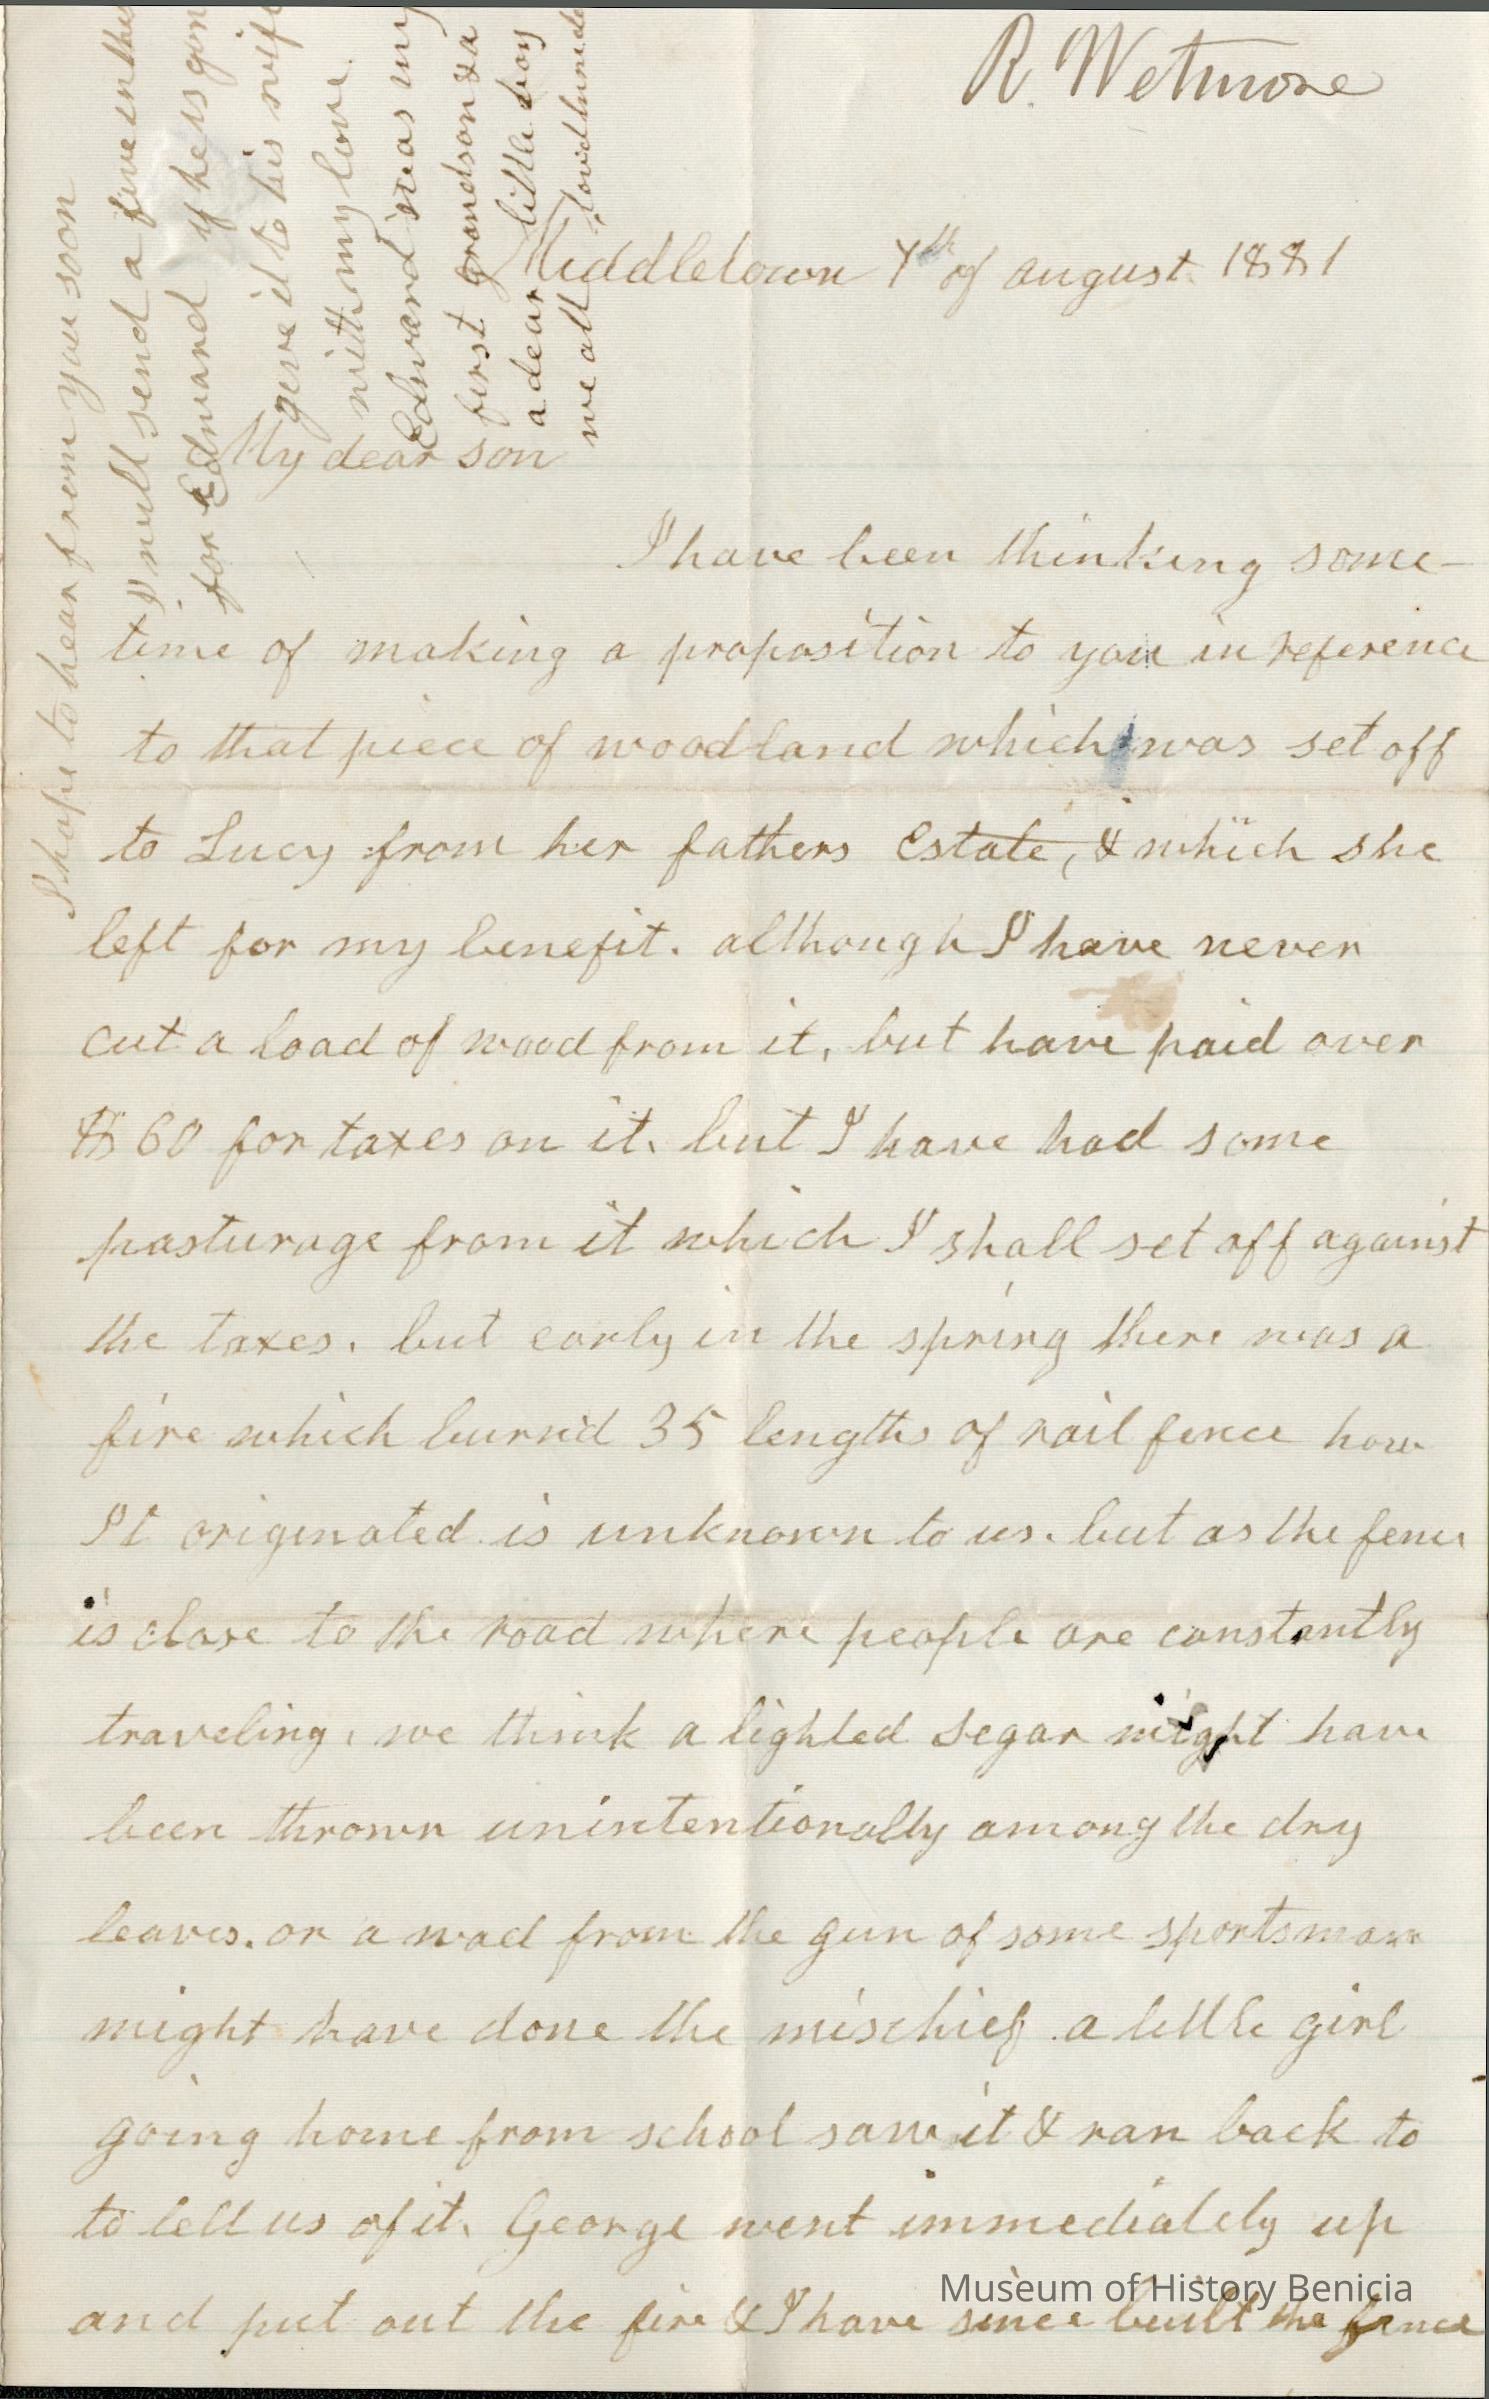 R. Wetmore
Middletown 7th of august. 1881
My dear son
I have been thinking some-
time of making a proposition to you in reference
to that piece of woodland which was set off
to Lucy from her fathers Estate, & which she
left for my benefit. although I have never
cut a load of wood from it, but have paid over
$60 for taxes on it. but I have had some
pasturage from it which I shall set off against
the taxes. but early in the spring there was a
fire which burn'd 35 lengths of rail fence how
It originated is unknown to us. but as the fence
is close to the road where people are constantly
traveling, we think a lighted segar might have
been thrown unintentionally among the dry
leaves. or a wad from the gun of some sportsman
might have done the mischief a little girl
going home from school saw it & ran back to
to tell us of it. George went immediately up
and put out the fire & I have since built the fence
I hope to hear from you soon
I will send a five in this
for Edward if he is gon
give it to his wife
with my love.
Edward was my
first grandson & a
a dear little boy
we all loved
Museum of History Benicia